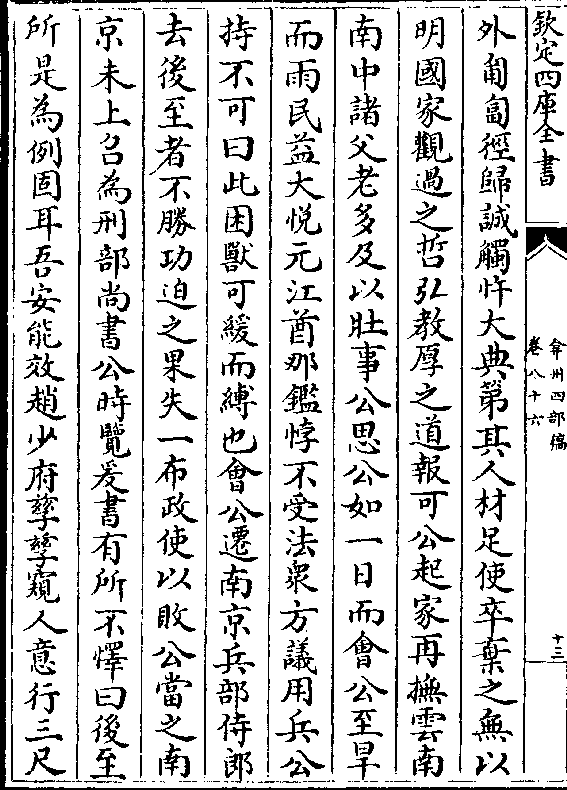 欽定四庫全書
弇州四部稿
卷八十六
十三
外匍匐徑歸誠觸忤大典第其人材足使卒棄之無以
明國家觀過之哲弘教厚之道報可公起家再撫雲南
南中諸父老多及以肚事公思公如一日而會公至旱
而雨民益大悅元江酋那鑑悖不受法衆方議用兵公
持不可曰此困獸可緩而縛也會公遷南京兵部侍郎
去後至者不勝功迫之果失一布政使以敗公當之南
京未上召為刑部尚書公時覽爰書有所不懌曰後至
所是為例固耳吾安能效趙少府孳孳窺人意行三尺